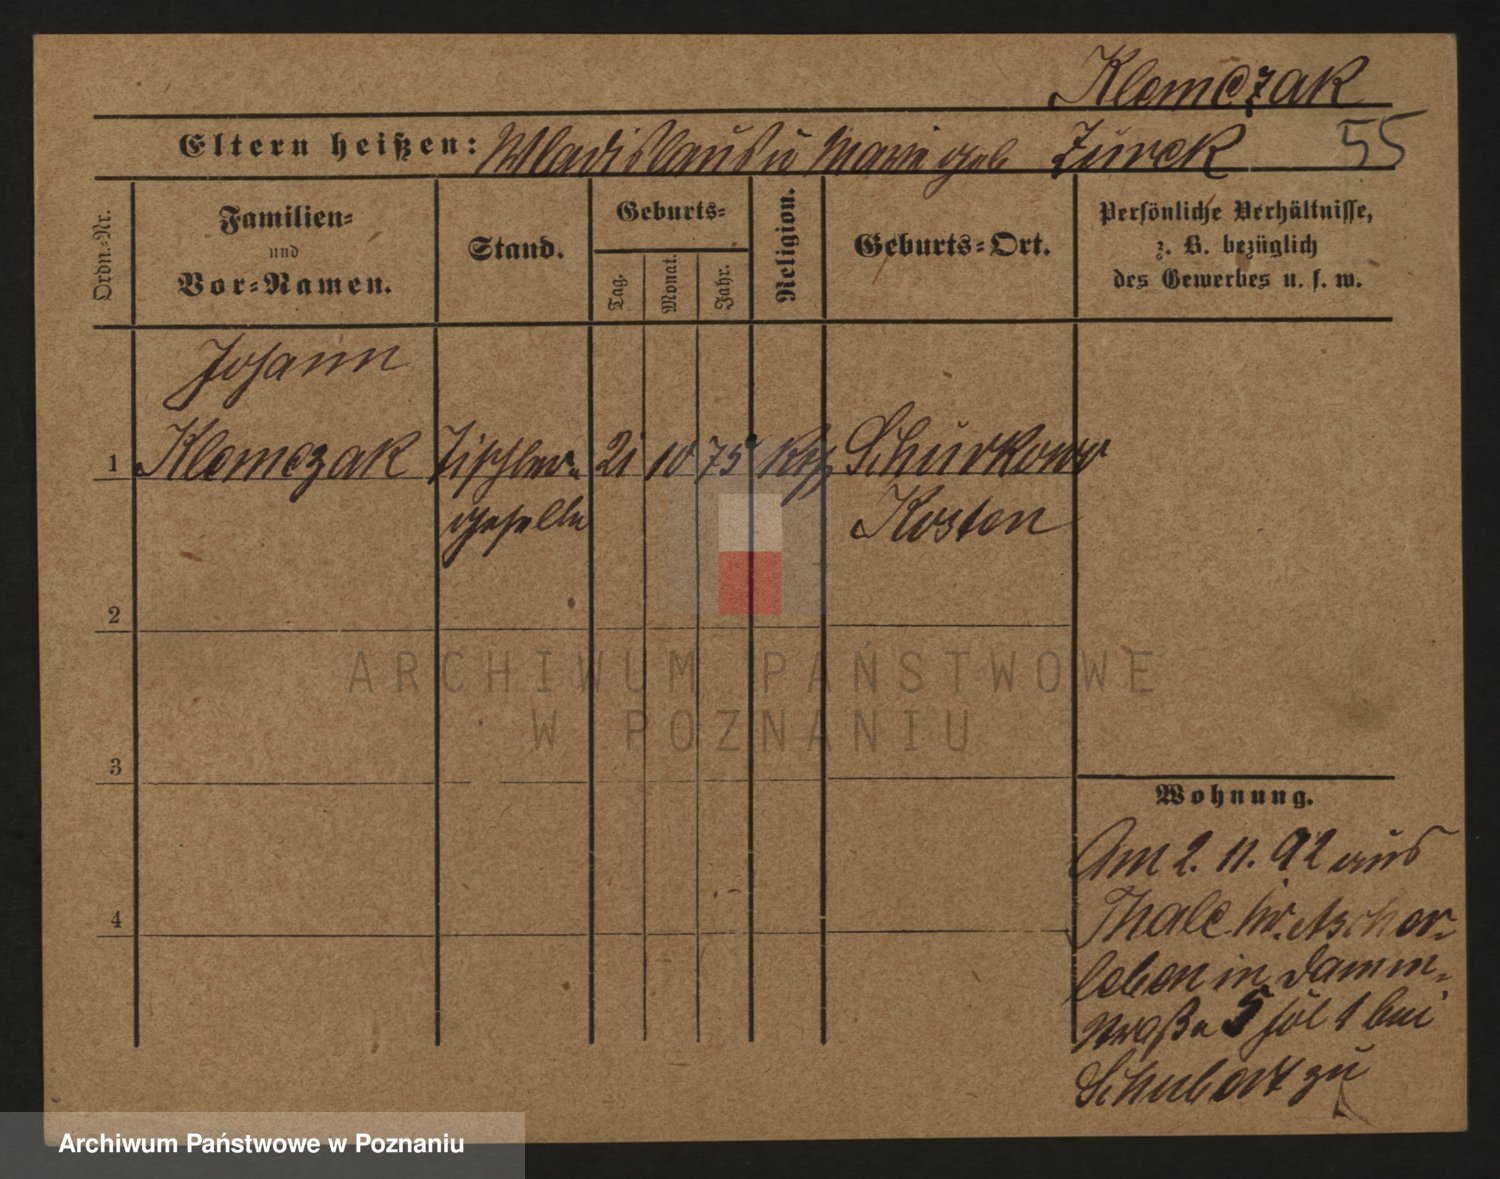 Klemczak
Eltern heißen: Wladislaus u Marie geb Zurek 55
Ordn.-Nr.
Familien-
und
Vor-Namen.
Stand.
Geburts-
Tag.
Monat.
Jahr.
Religion.
Geburts-Ort.
Persönliche Verhältnisse,
z. B. bezüglich
des Gewerbes u. s. w.
Johann
1 Klemczak Tischler- 21 10 75 Kth Schurkowo
geselle Kosten
2
3
4
Wohnung.
Am 2. 11. 92 aus
Thale Kr. Ascher-
leben in Damm-
straße 5 I bei
Schubert zu
ARCHIWUM PAŃSTWOWE
W POZNANIU
Archiwum Państwowe w Poznaniu